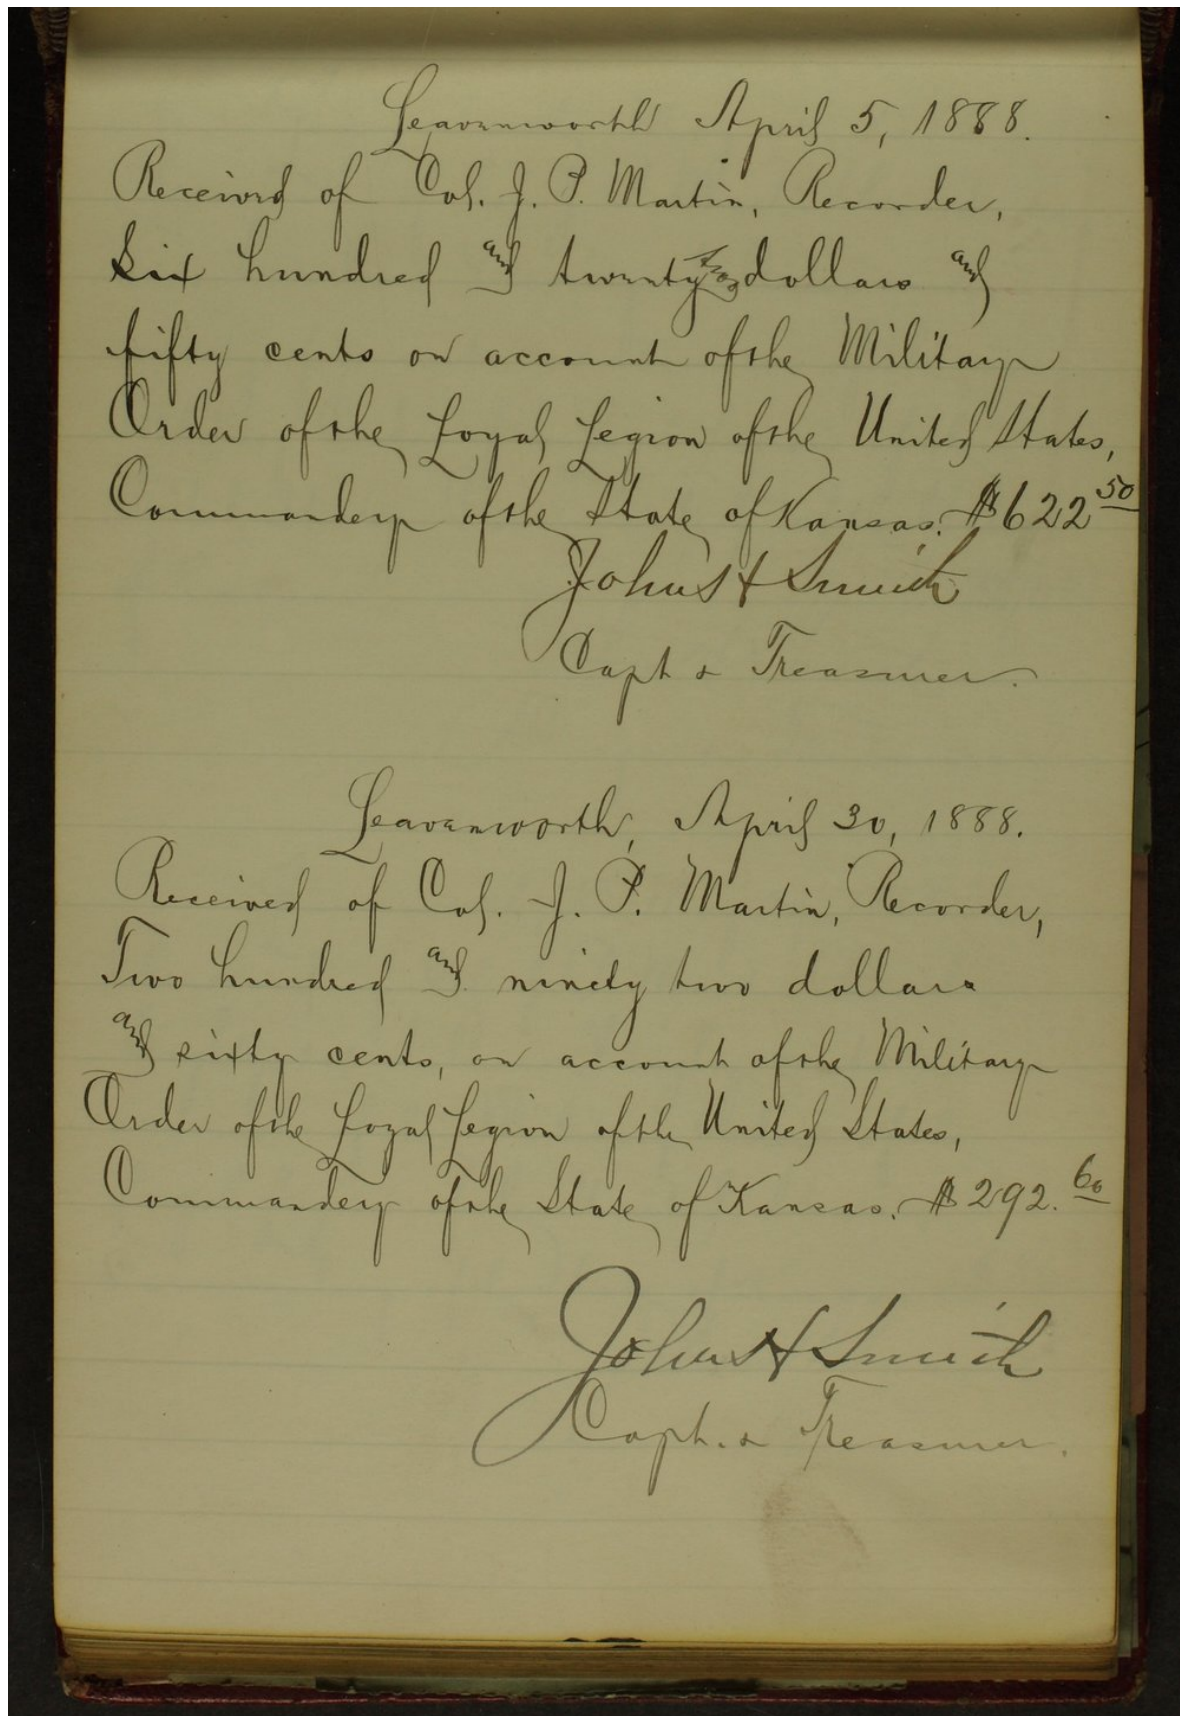 Leavenworth April 5, 1888.
Received of Col. J. P. Martin, Recorder,
Six hundred and twenty two dollars and
fifty cents on account of the Military
Order of the Loyal Legion of the United States,
Commandery of the State of Kansas. $622 50
John H Smith
Capt & Treasurer.
Leavenworth, April 30, 1888.
Received of Col. J. P. Martin, Recorder,
Two hundred and ninety two dollars
and sixty cents, on account of the Military
Order of the Loyal Legion of the United States,
Commandery of the State of Kansas. $292. 60
John H Smith
Capt. & Treasurer.